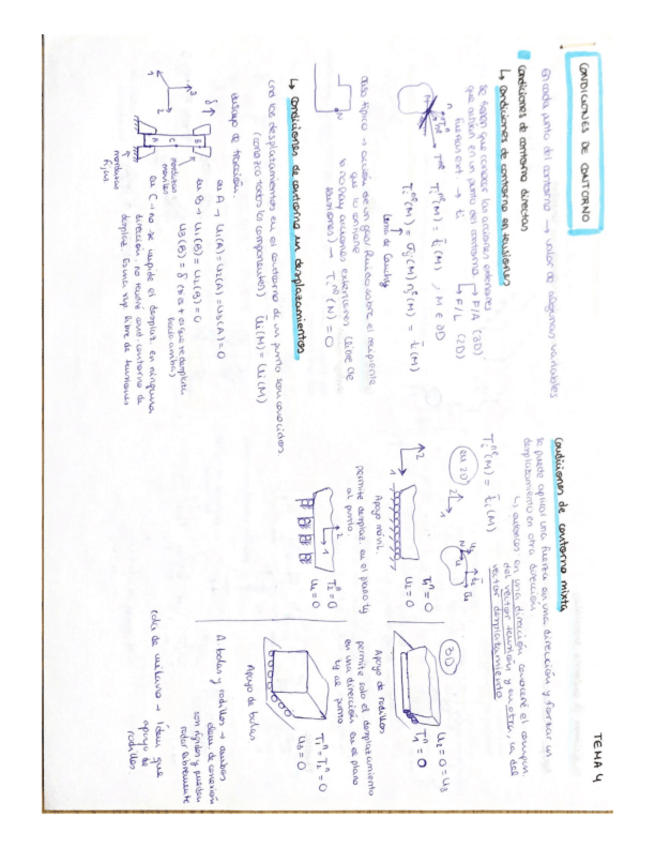 TEMA 4
CONDICIONES DE CONTORNO
en cada punto del contorno → valor de algunas variables
Condiciones de contorno directas
↳ condiciones de contorno en tensiones
se tienen que conocer las acciones exteriores
que actúan en un punto del contorno → F/A (3D)
↳ F/L (2D)
fuerza ext. → t̄i
Ti^n(M) = t̄i(M), M ∈ ∂D
Ti^n(M) = σij(M) nj(M) = t̄i(M)
Lema de Cauchy
caso típico → acción de un gas/fluido sobre el recipiente
que lo contiene
lo no hay acciones exteriores (libre de
tensiones) → Ti^n(N) = 0
↳ condiciones de contorno en desplazamientos
cno los desplazamientos en el contorno de un punto son conocidos
(conozco todas las componentes) ūi(M) = ui(M)
ensayo de tracción.
en A → u1(A) = u2(A) = u3(A) = 0
en B → u1(B) = u2(B) = 0
u3(B) = δ (cte + a que se desplaza
hacia arriba)
en C → no se impide el desplaz. en ninguna
dirección, no tendré cond. contorno de
desplaz. Es una sup libre de tensiones
mordazas
móviles
mordazas
fijas
Condiciones de contorno mixta
se puede aplicar una fuerza en una dirección y forzar un
desplazamiento en otra dirección
↳ entonces en una dirección conoceré el compon.
del vector tensión y en otra, la del
vector desplazamiento
Ti^n(M) = t̄i(M)
en 2D
T1^n = 0
u2 = 0
Apoyo móvil.
permite desplaz. en el plano tg
al punto.
T2^n = 0
u1 = 0
3D
u2 = 0 = u3
T1^n = 0
Apoyo de rodillos
permite solo el desplazamiento
en una dirección en el plano
tg al punto
T1^n = T2^n = 0
u3 = 0
Apoyo de bolas
A. bolas y rodillos → ambos
elem de conexión
son rígidos y pueden
rodar libremente
→ Ídem que
apoyo de
rodillos